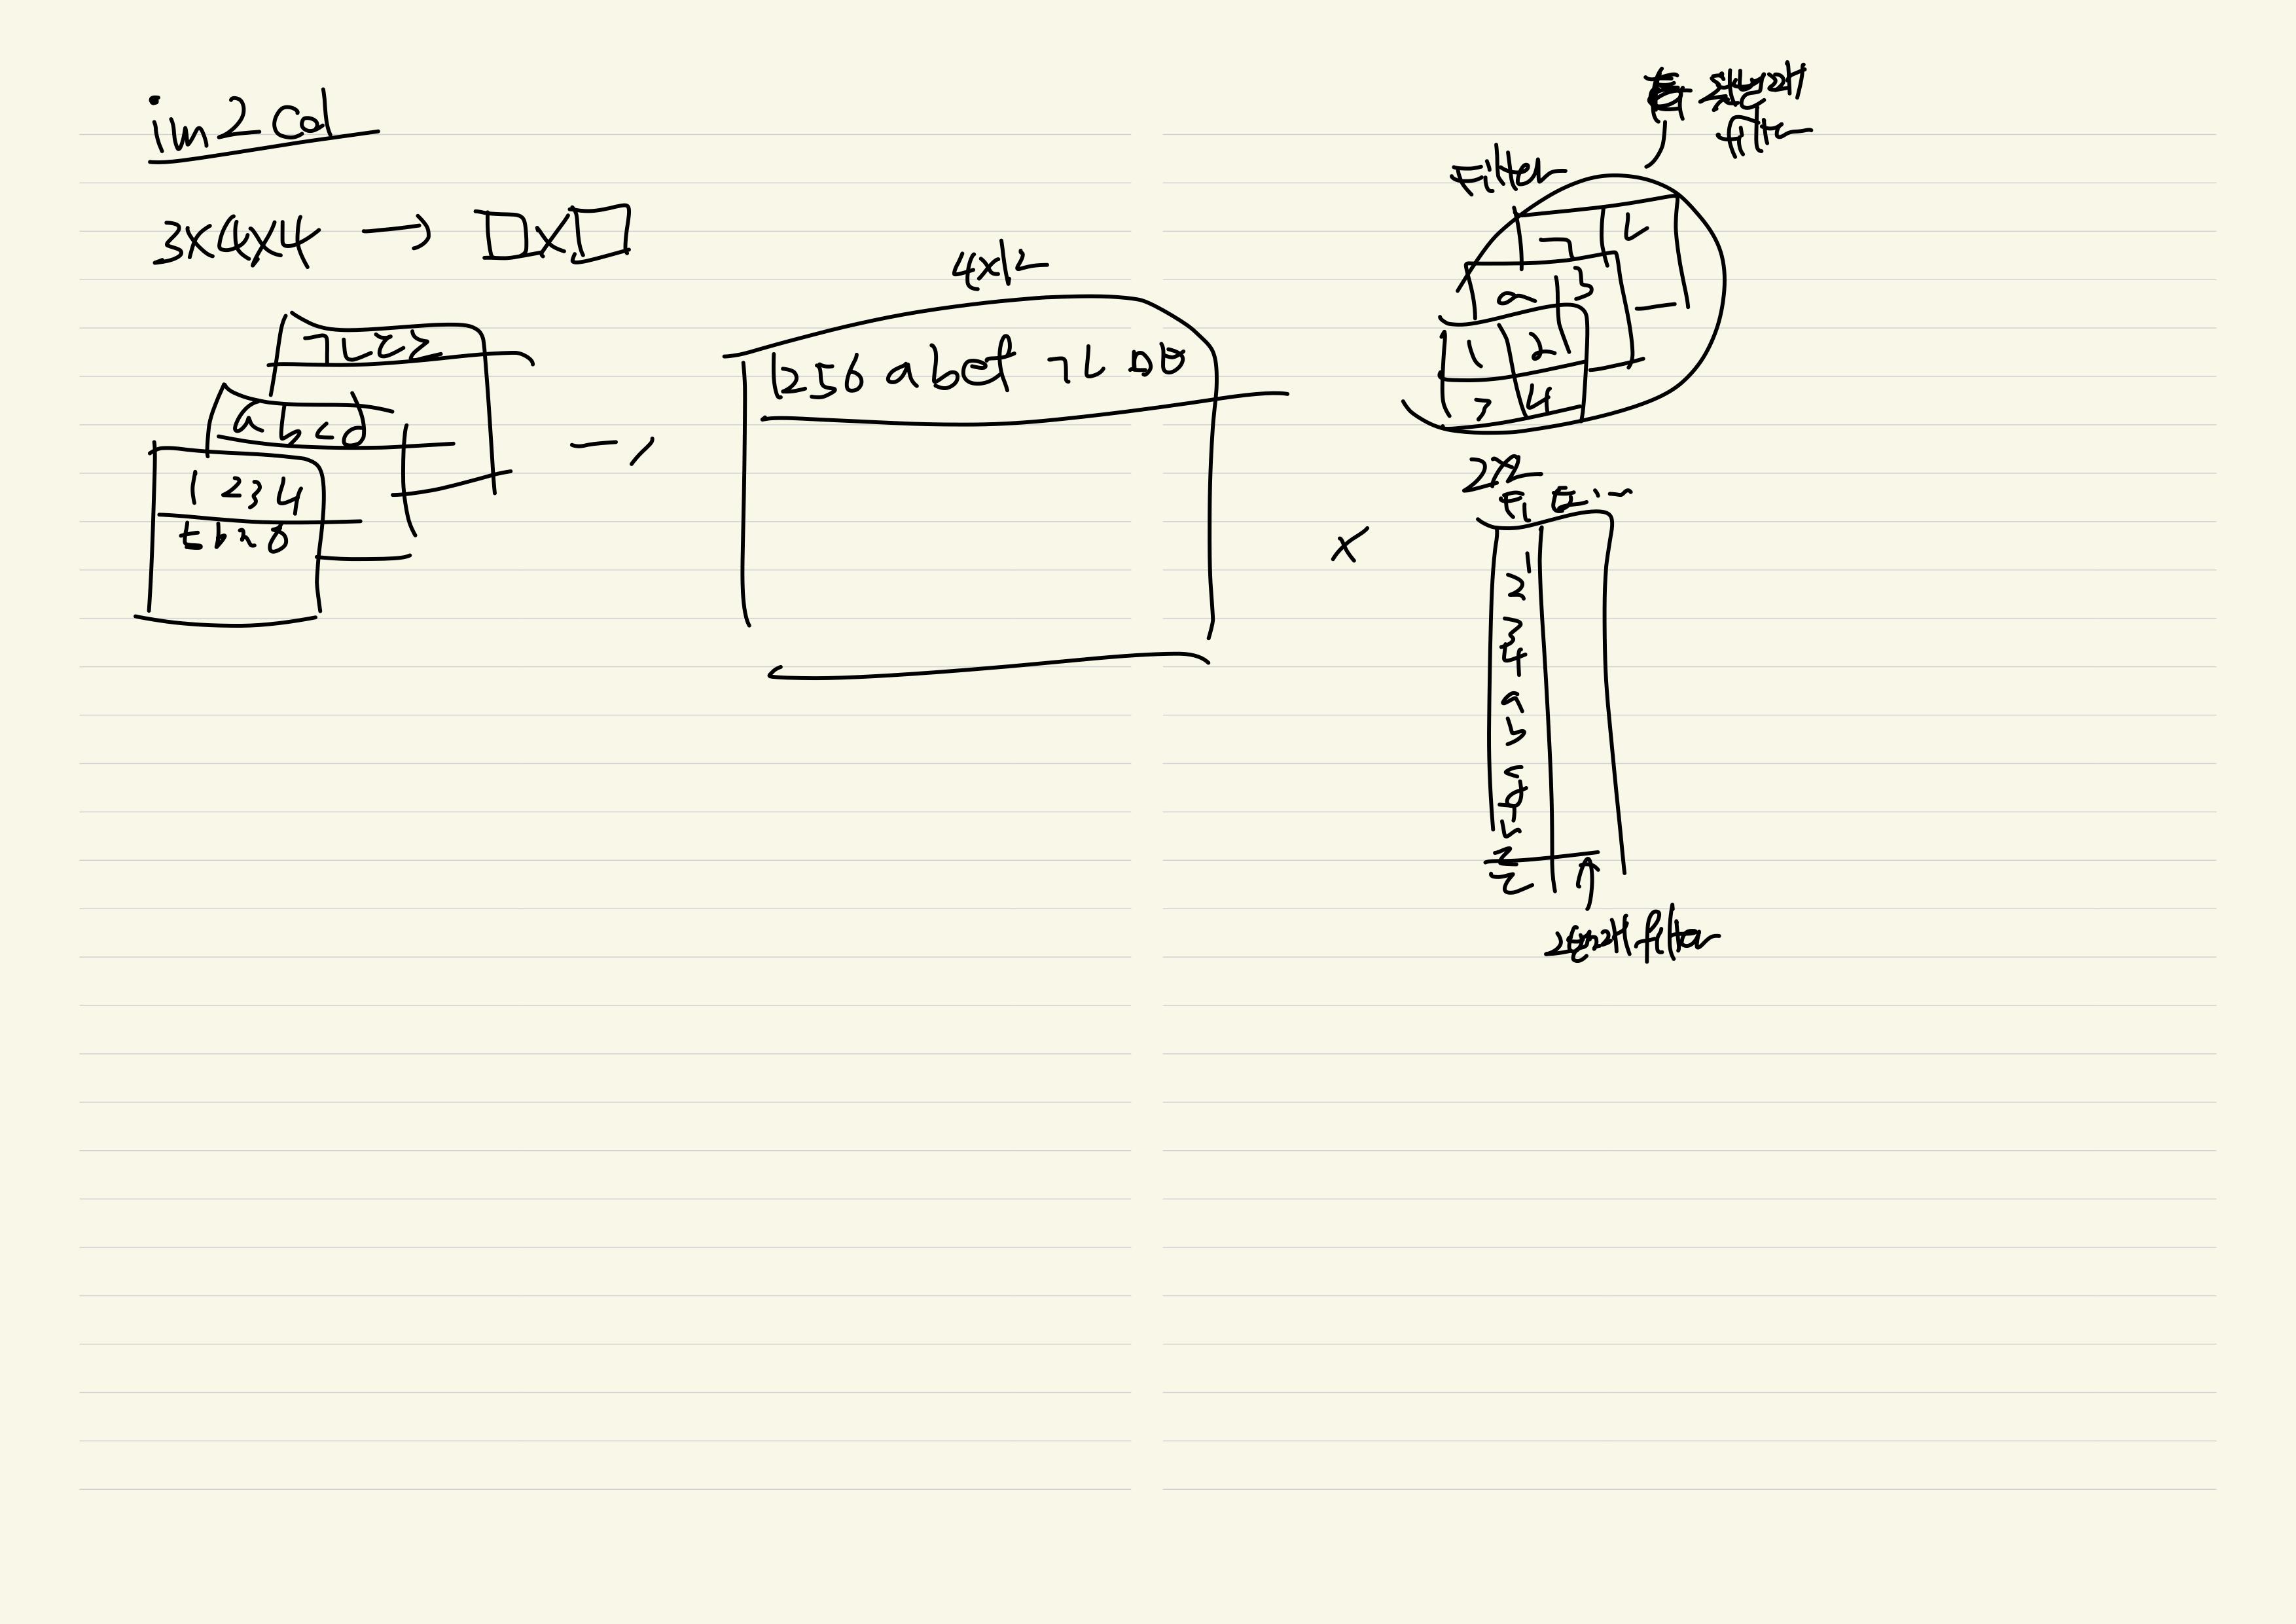 im2col
3x4x4 → □x□
ㄱㄴㄷㄹ
a b c d
1 2 3 4
5 6 7 8
4x12
1256 abef ㄱㄴㅁㅂ
x
Filter
2번째
filter
ㄱ ㄴ
a b
1 2
3 4
2x2
1
2
3
4
a
b
c
d
ㄱ
ㄴ
ㄷ
ㄹ
2번째 filter